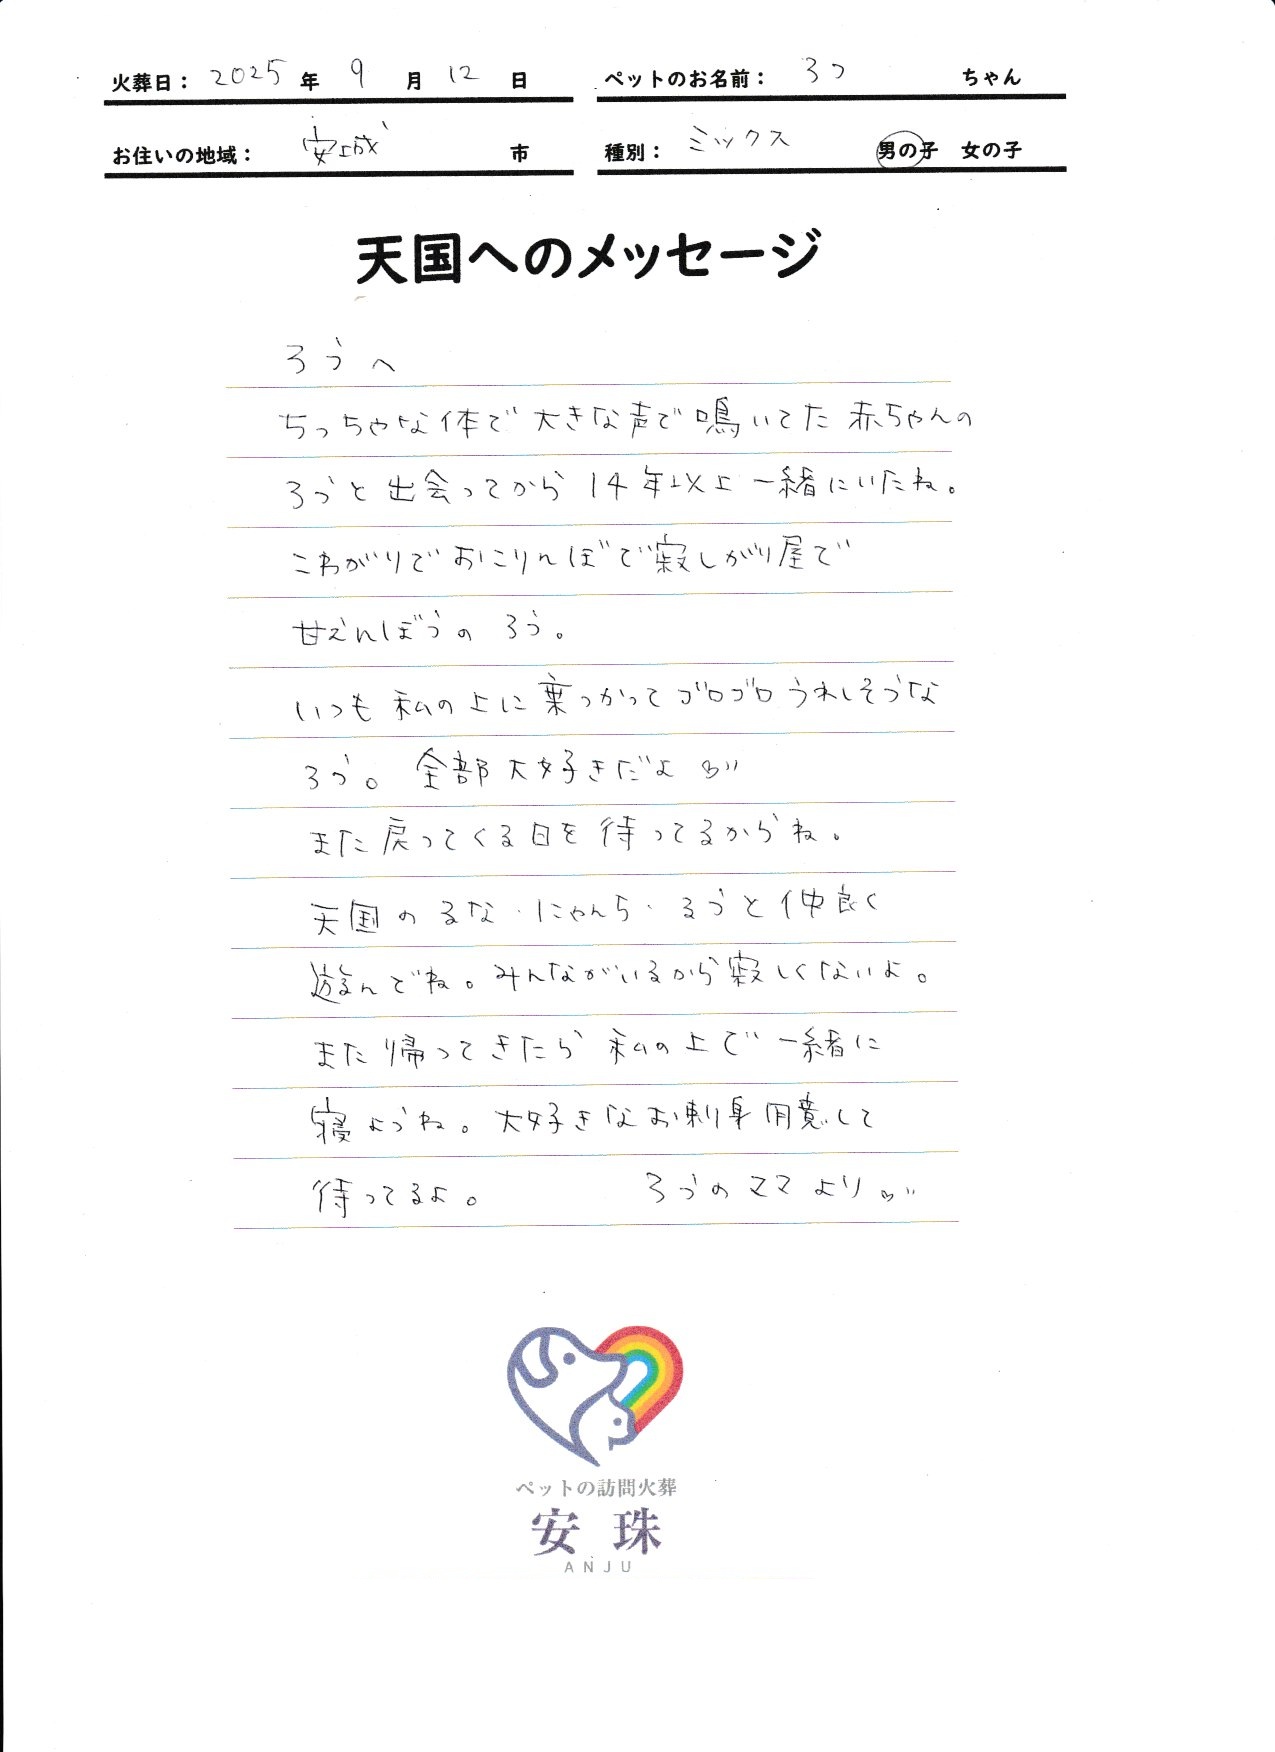 火葬日： 2025 年 9 月 12 日
ペットのお名前： ろう ちゃん
お住いの地域： 安城 市
種別： ミックス 男の子 女の子
天国へのメッセージ
ろうへ
ちっちゃな体で大きな声で鳴いてた赤ちゃんの
ろうと出会ってから14年以上一緒にいたね。
こわがりでおこりんぼで寂しがり屋で
甘えんぼうのろう。
いつも私の上に乗っかってゴロゴロうれしそうな
ろう。全部大好きだよ
また戻ってくる日を待ってるからね。
天国のるな・にゃんち・るうと仲良く
遊んでね。みんながいるから寂しくないよ。
また帰ってきたら私の上で一緒に
寝ようね。大好きなお刺身用意して
待ってるよ。 ろうのママより
ペットの訪問火葬
安珠
ANJU